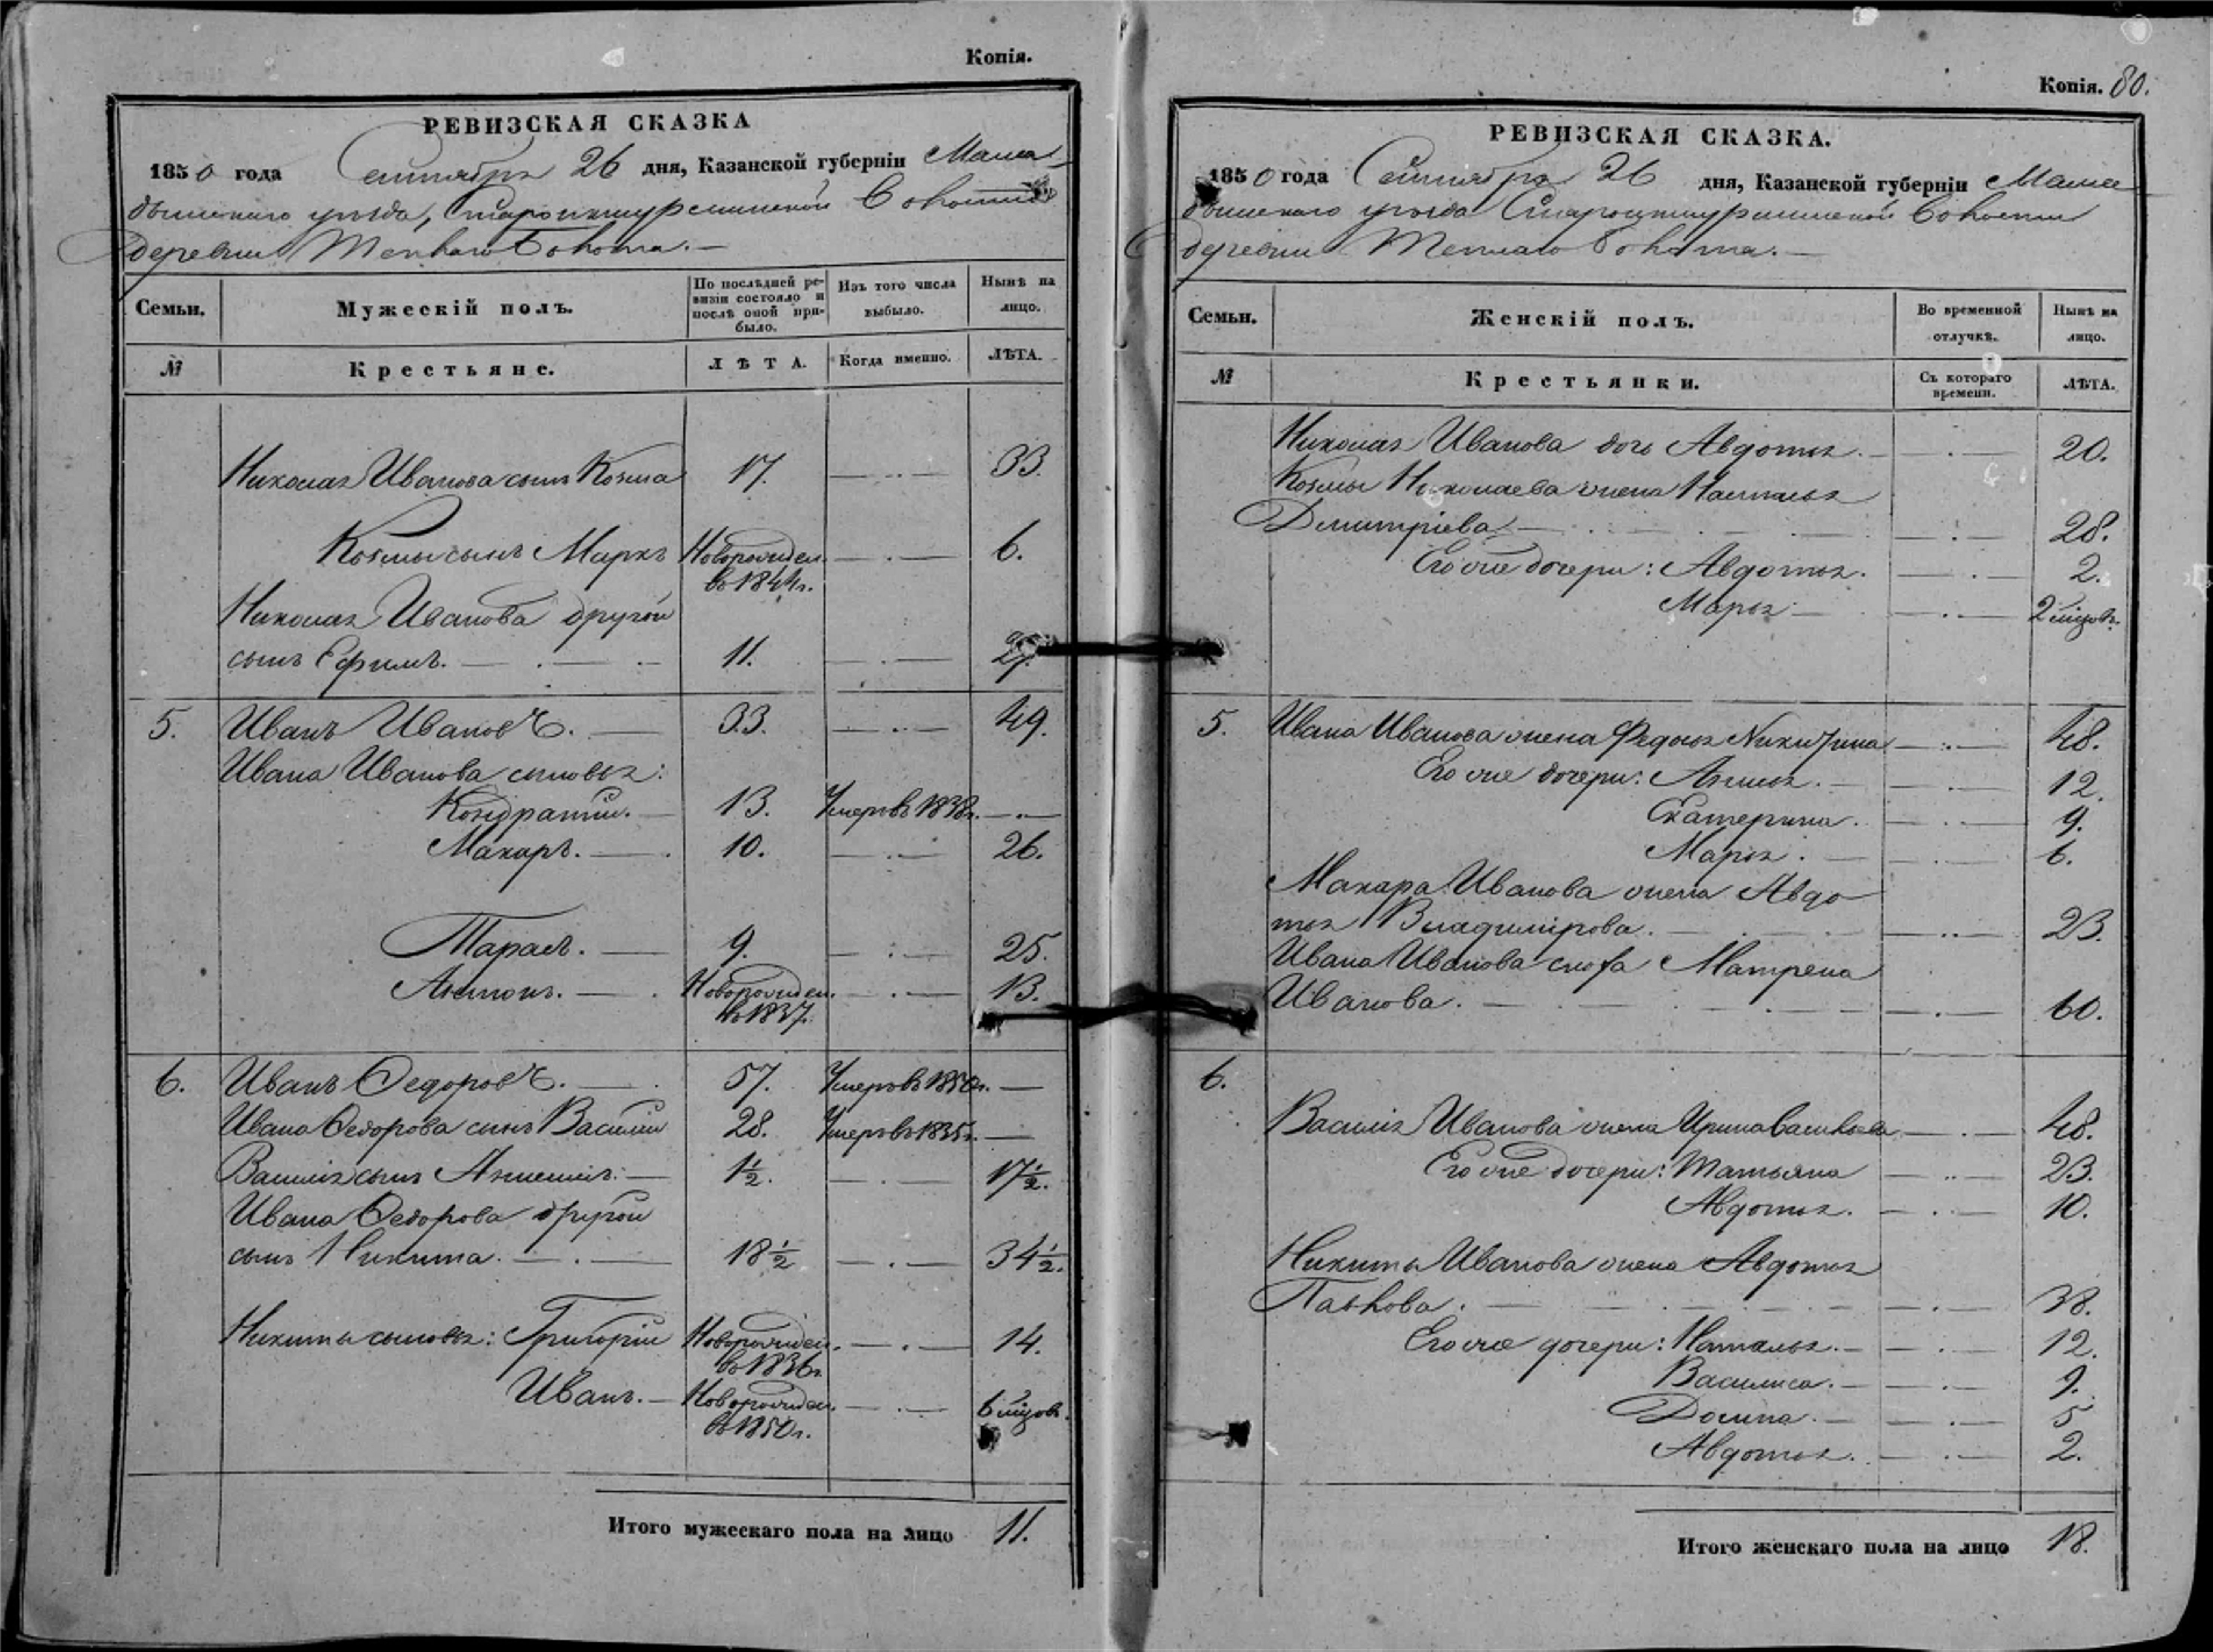 Копія.
РЕВИЗСКАЯ СКАЗКА
1850 года Сентября 26 дня, Казанской губерніи Мама
дышскаго уѣзда, Волости
деревни Теплаго Болота.
Семьи. Мужескій полъ. По послѣдней ревизіи состояло и послѣ оной прибыло. Изъ того числа выбыло. Нынѣ на лицо.
№ Крестьяне. ЛѢТА. Когда именно. ЛѢТА.
Николая Иванова сынъ Козма 17. 33.
Козмы сынъ Маркъ Новорожден. въ 1844 г. 6.
Николая Иванова другой
сынъ Ефимъ. 11. 27.
5. Иванъ Ивановъ. 33. 49.
Ивана Иванова сыновья:
Кондратій. 13. Умеръ въ 1838 г.
Макаръ. 10. 26.
Тарасъ. 9. 25.
Новорожден. въ 1837. 13.
6. Иванъ Ѳедоровъ. 57. Умеръ въ 1850 г.
Ивана Ѳедорова сынъ Василій 28. Умеръ въ 1835 г.
Василія сынъ 1½. 17½.
Ивана Ѳедорова другой
сынъ Никита. 18½ 34½.
Никиты сыновья: Григорій Новорожден. въ 1836 г. 14.
Иванъ. Новорожден. въ 1850 г. 6 мѣсяцов.
Итого мужескаго пола на лицо 11.
Копія. 80.
РЕВИЗСКАЯ СКАЗКА.
1850 года Сентября 26 дня, Казанской губерніи Мама
дышскаго уѣзда Волости
деревни Теплаго Болота.
Семьи. Женскій полъ. Во временной отлучкѣ. Нынѣ на лицо.
№ Крестьянки. Съ котораго времени. ЛѢТА.
Николая Иванова дочь Авдотья. 20.
Козмы Николаева жена Наталья
Дмитріева 28.
Его же дочери: Авдотья. 2.
Марья 2 мѣсяцов.
5. Ивана Иванова жена Федосья Никитина 48.
Его же дочери: 12.
Екатерина. 9.
Марья. 6.
Макара Иванова жена Авдо
тья Владимірова. 23.
Ивана Иванова Матрена
Иванова. 60.
6.
Василія Иванова жена Ирина Васильева 48.
Его же дочери: Татьяна 23.
Авдотья. 10.
Никиты Иванова жена Авдотья
Павлова. 38.
Его же дочери: Наталья. 12.
Василиса. 9.
5
Авдотья. 2.
Итого женскаго пола на лицо 18.